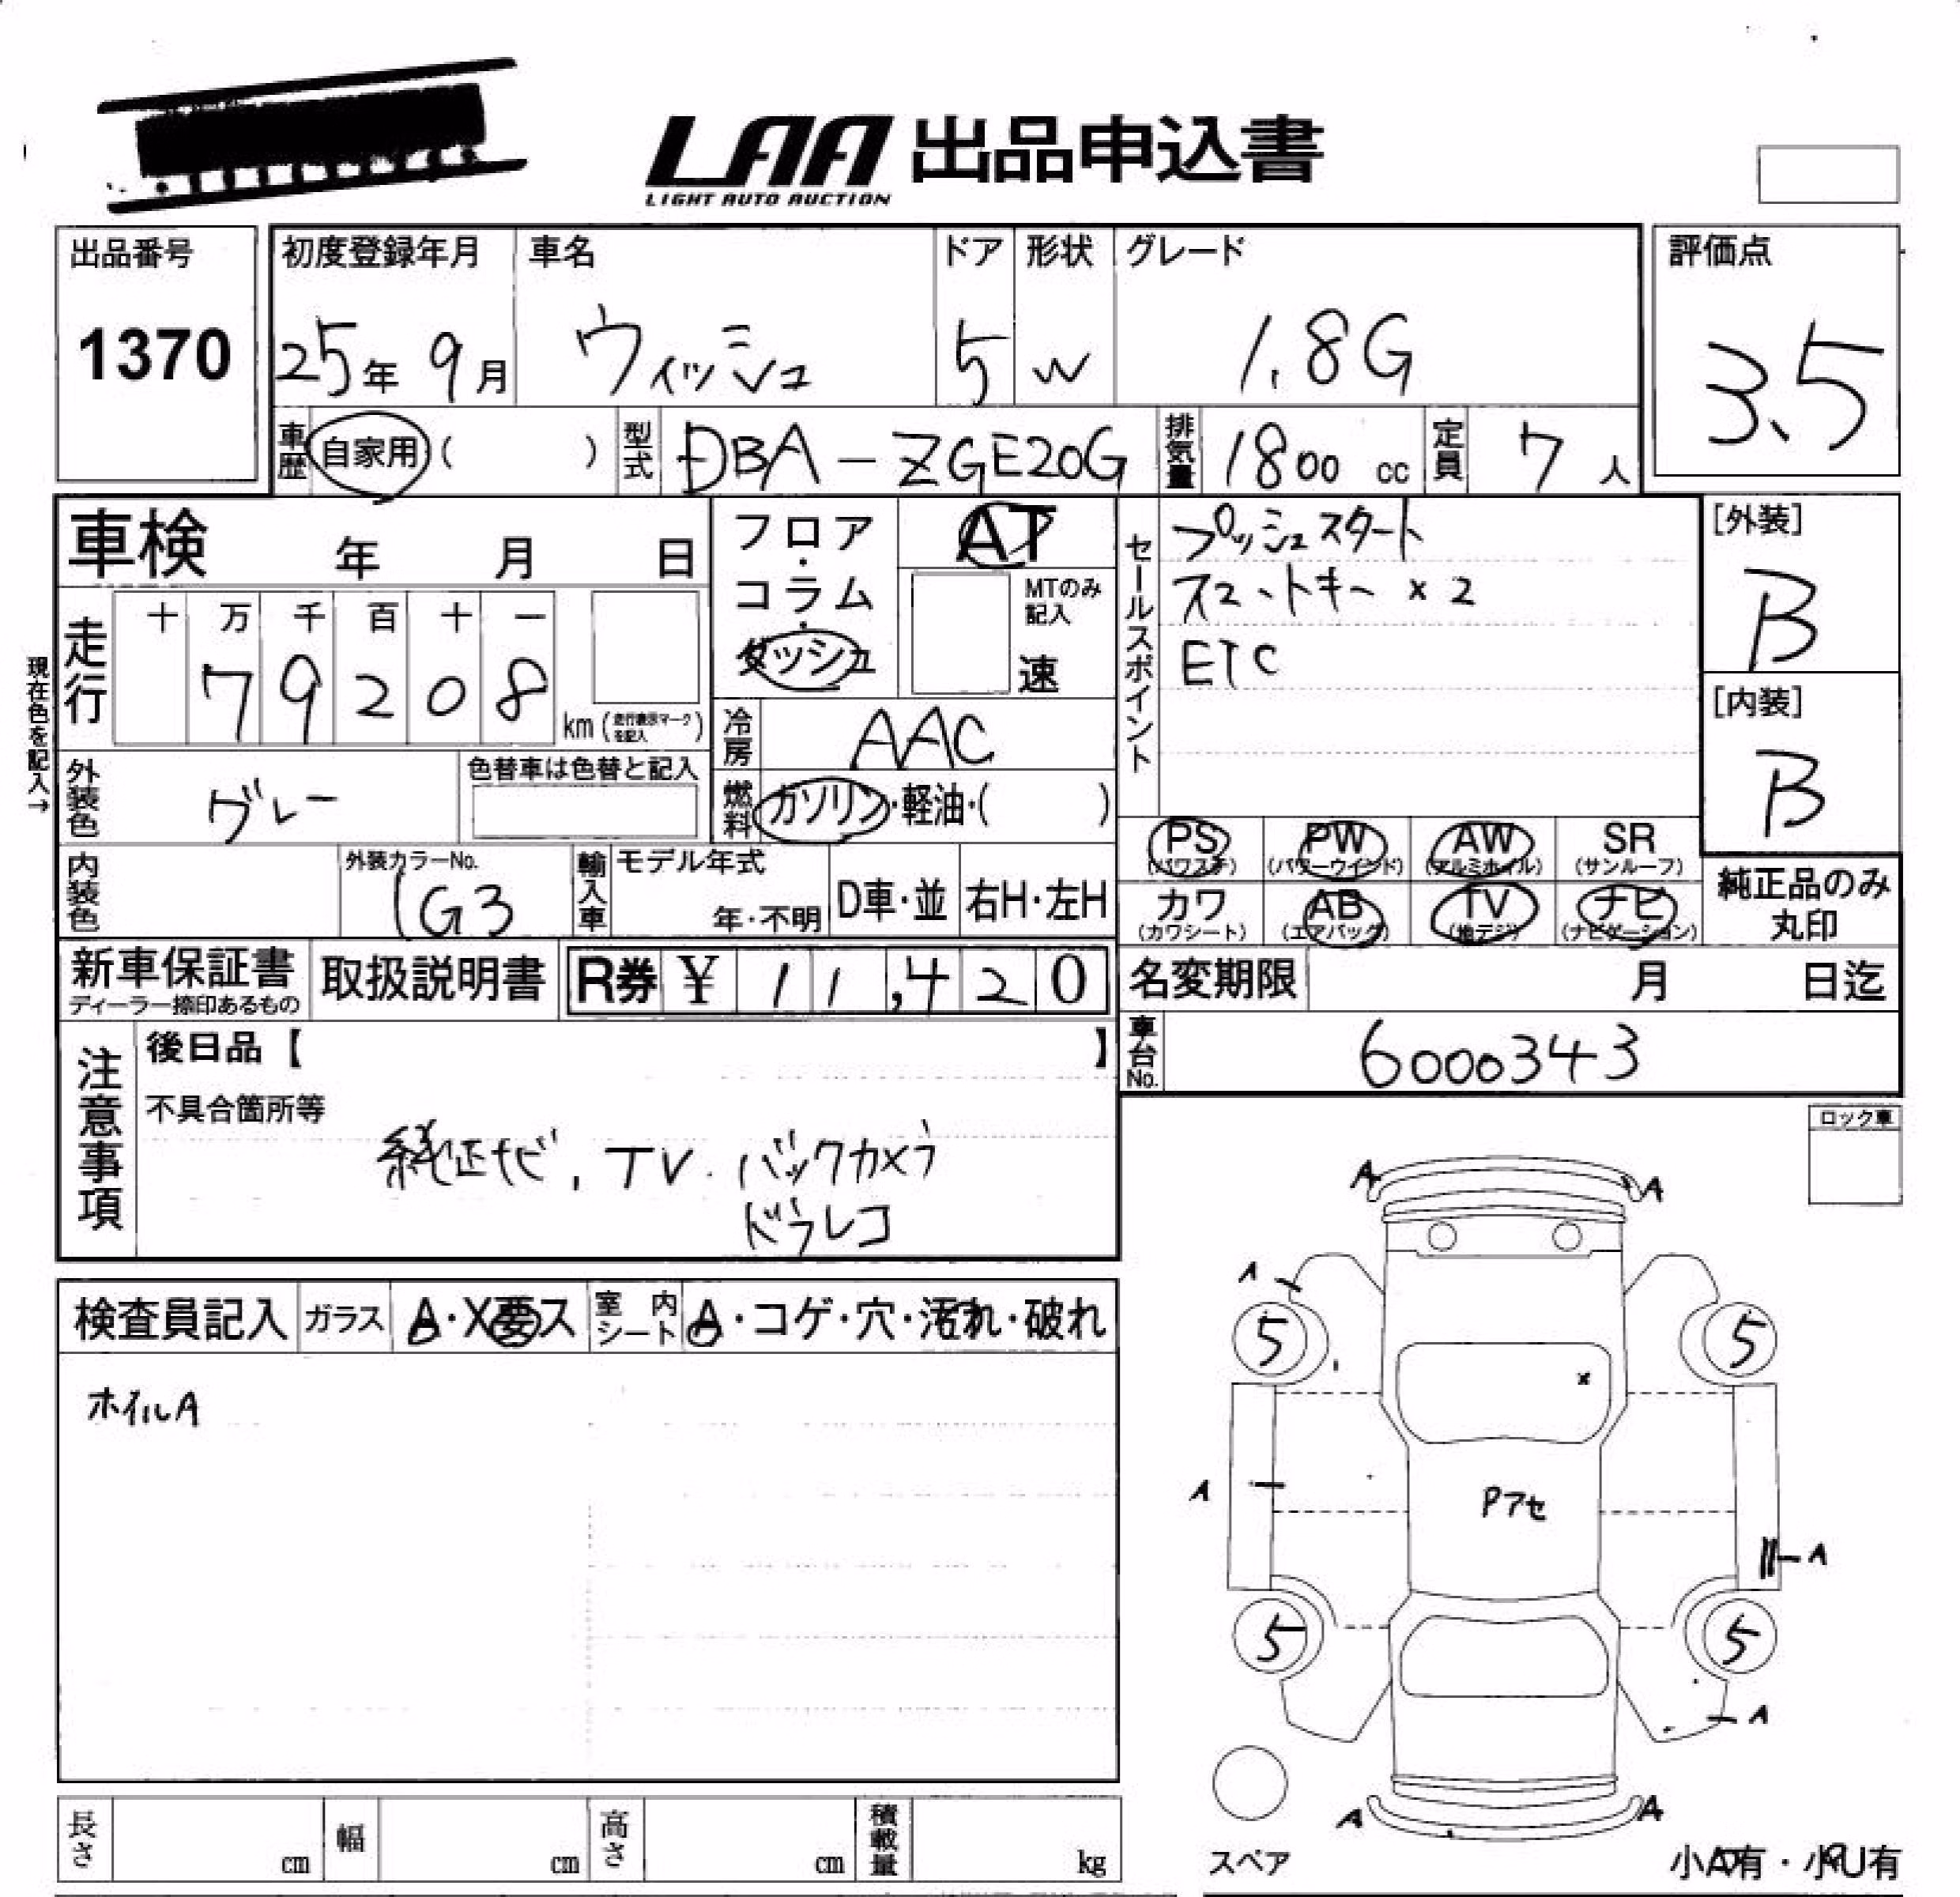 LAA 出品申込書
LIGHT AUTO AUCTION
出品番号
1370
初度登録年月
25年 9月
車名
ウィッシュ
ドア
5
形状
W
グレード
1.8G
評価点
3.5
車歴 自家用 ( )
型式 DBA-ZGE20G
排気量 1800 cc
定員 7 人
車検 年 月 日
フロア・コラム・ダッシュ
AT
MTのみ記入
速
セールスポイント
プッシュスタート
スマートキー ×2
ETC
[外装]
B
[内装]
B
現在色を記入→
走行
十 万 千 百 十 一
7 9 2 0 8
km (走行表示マークを記入)
冷房 AAC
燃料 ガソリン・軽油・( )
外装色 グレー
色替車は色替と記入
内装色
外装カラーNo.
1G3
輸入車
モデル年式
年・不明
D車・並
右H・左H
PS (パワステ)
PW (パワーウインド)
AW (アルミホイル)
SR (サンルーフ)
カワ (カワシート)
AB (エアバック)
TV (地デジ)
ナビ (ナビゲーション)
純正品のみ丸印
新車保証書
ディーラー捺印あるもの
取扱説明書
R券 ¥ 11,420
名変期限 月 日迄
車台No. 6000343
注意事項
後日品【 】
不具合箇所等
純正ナビ, TV. バックカメラ
ドラレコ
ロック車
検査員記入
ガラス A・X要ス
室内シート A・コゲ・穴・汚れ・破れ
ホイルA
A A
A
5 5
×
A
Pアセ
A
5 5
A
A A
スペア
小A有・小U有
長さ cm
幅 cm
高さ cm
積載量 kg